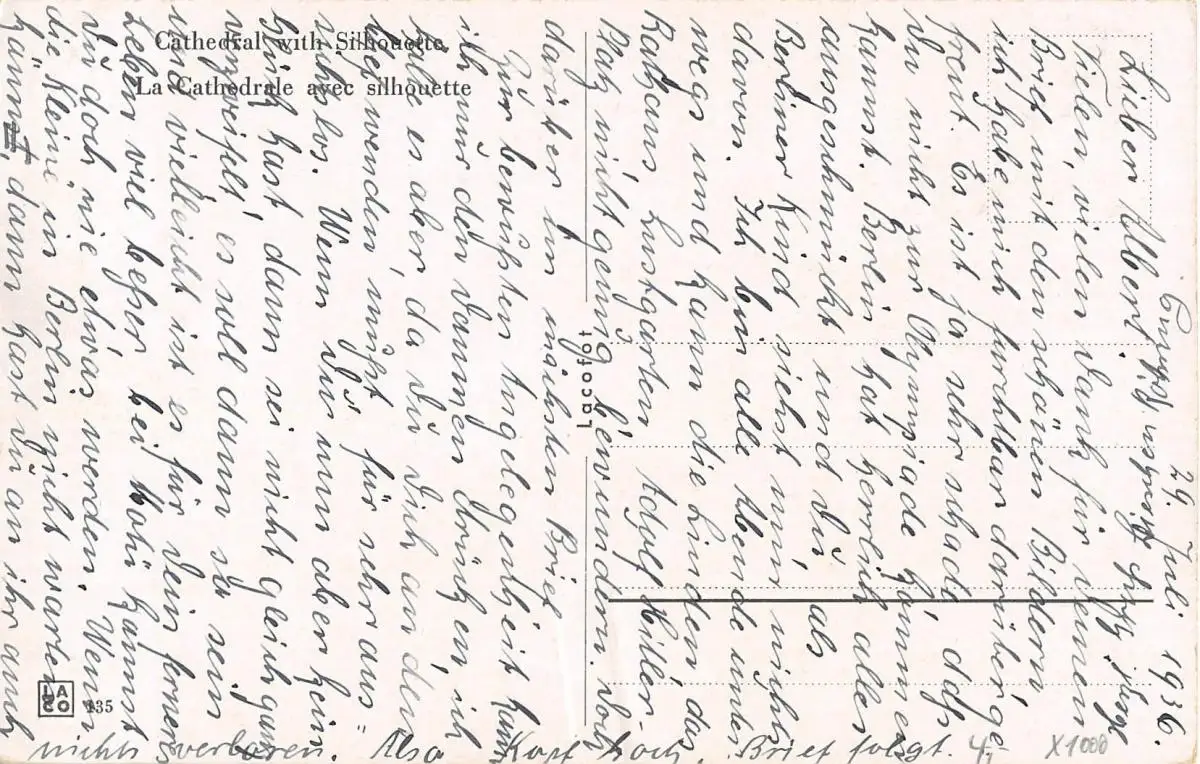 29. Juli 1936.
Lieber Albert,
Vielen, vielen Dank für Deinen
Brief mit den schönen Bildern
ich habe mich furchtbar darüber ge-
freut. Es ist ja sehr schade, daß
Du nicht zur Olympiade kommen
kannst. Berlin hat herrlich alles
ausgeschmückt und Du, als
Berliner Kind siehst nun nichts
davon. Ich bin alle Abende unter-
wegs und kann die Linden, das
Rathaus, Lustgarten Adolf Hitler-
Platz nicht genug bewundern. Doch
darüber im nächsten Brief
Zur bewußten Angelegenheit kann
ich nur den Daumen drücken, ich
tue es aber, da Du Dich an den
Chef wenden mußt für sehr aus=
sichtslos. Wenn Du nun aber kein
Glück hast, dann sei nicht gleich ganz
verzweifelt, es soll dann so sein
und vielleicht ist es für Dein ferneres
Leben viel besser, bei Kohn kannst
Du doch nie etwas werden. Wenn
die Kleine in Berlin nicht warten
kann, dann hast Du an ihr auch
nichts verloren. Also Kopf hoch. Brief folgt.
X1000
Cathedral with Silhouette.
La Cathédrale avec silhouette
Lacofot
LA
CO
135